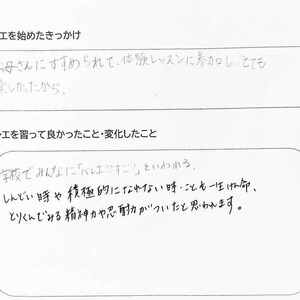 エを始めたきっかけ
お母さんにすすめられて、体験レッスンに参加し、とても
楽しかったから。
エを習って良かったこと・変化したこと
学校でみんなに「べんきょうすごい」といわれる。
しんどい時や積極的になれない時・ことも一生けん命、
とりくんでみる精神力や忍耐力がついたと思われます。